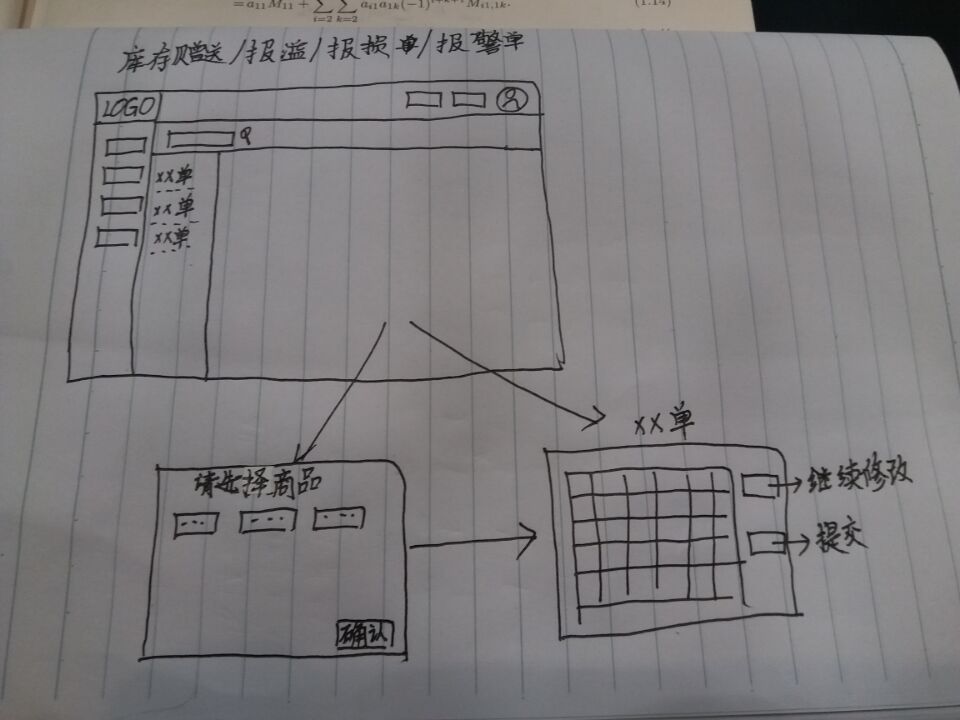 = a₁₁M₁₁ + ∑ᵢ₌₂ ∑ₖ₌₂ aᵢ₁a₁ₖ(−1)ⁱ⁺ᵏ⁺¹Mᵢ₁,₁ₖ. (1.14)
库存赠送/报溢/报损单/报警单
LOGO
xx单
xx单
xx单
xx单
请选择商品
继续修改
提交
确认